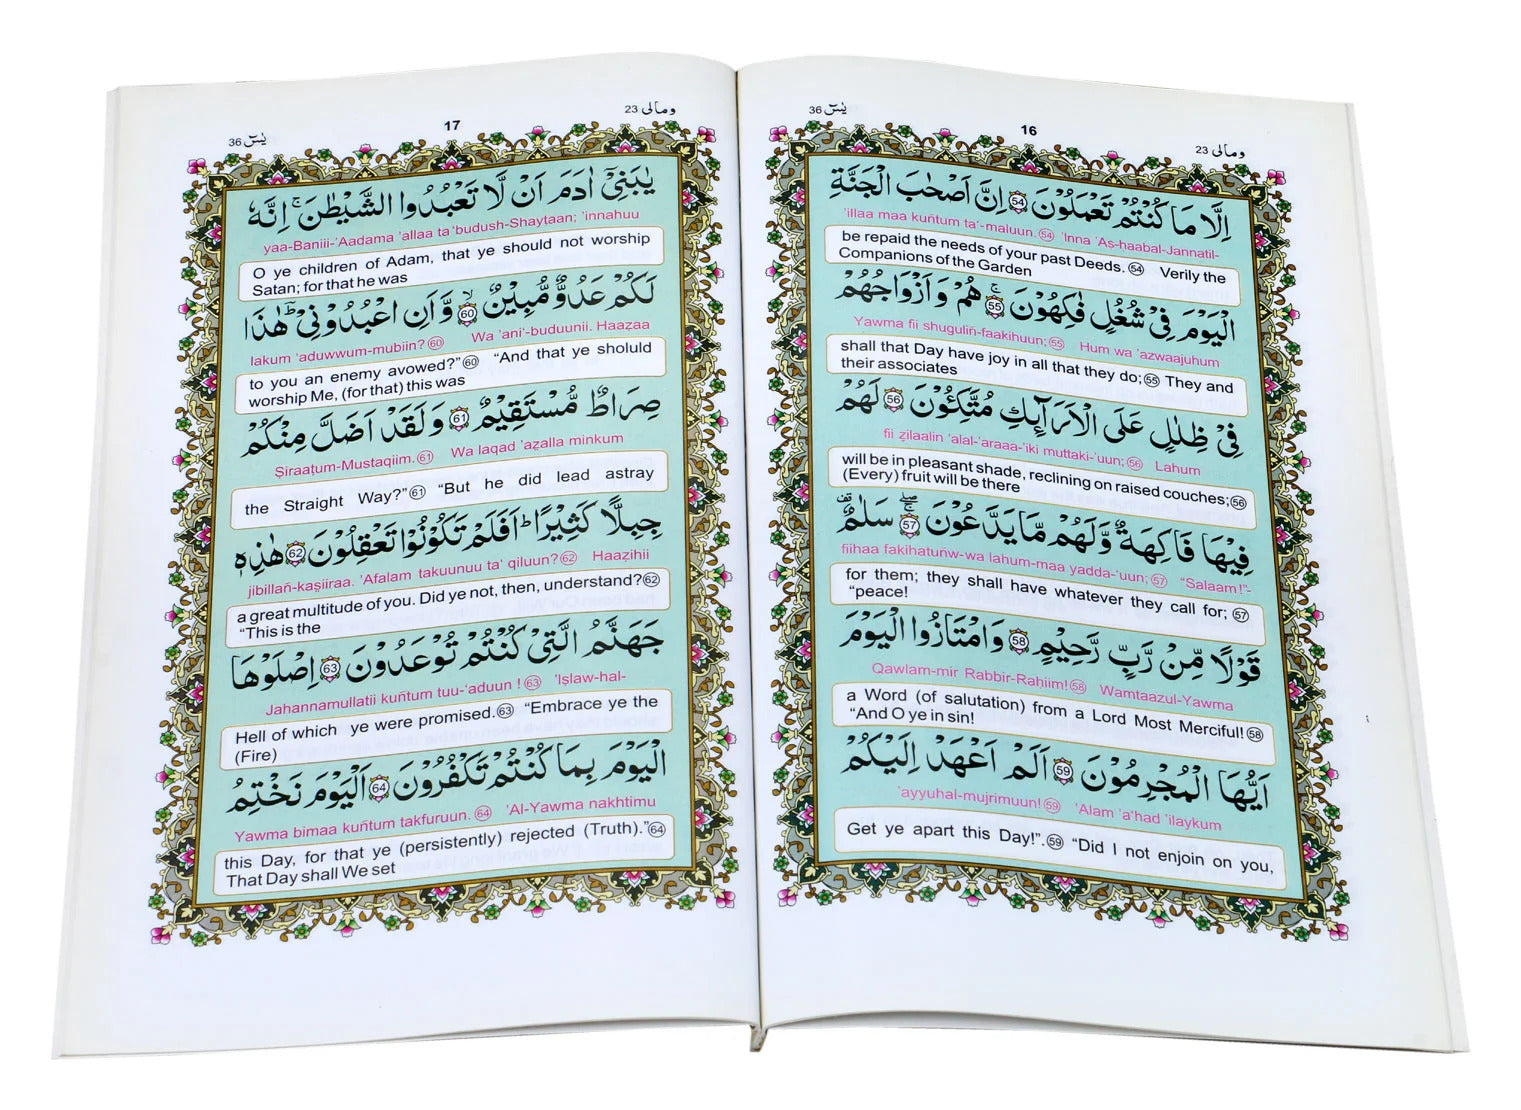 یٰسٓ 36
16
ومالی 23
اِلَّا مَا كُنْتُمْ تَعْمَلُوْنَ 54 اِنَّ اَصْحٰبَ الْجَنَّةِ
'illaa maa kuñtum ta'-maluun. 54 'Inna 'As-haabal-Jannatil-
be repaid the needs of your past Deeds. 54 Verily the
Companions of the Garden
الْيَوْمَ فِيْ شُغُلٍ فٰكِهُوْنَ 55 ۚ هُمْ وَاَزْوَاجُهُمْ
Yawma fii shuguliñ-faakihuun; 55 Hum wa 'azwaajuhum
shall that Day have joy in all that they do; 55 They and
their associates
فِيْ ظِلٰلٍ عَلَى الْاَرَآىِٕكِ مُتَّكِـُٔوْنَ 56 لَهُمْ
fii ẓilaalin 'alal-'araaa-'iki muttaki-'uun; 56 Lahum
will be in pleasant shade, reclining on raised couches; 56
(Every) fruit will be there
فِيْهَا فَاكِهَةٌ وَّلَهُمْ مَّا يَدَّعُوْنَ 57 سَلٰمٌ
fiihaa fakihatuñw-wa lahum-maa yadda-'uun; 57 “Salaam!”-
for them; they shall have whatever they call for; 57
“peace!
قَوْلًا مِّنْ رَّبٍّ رَّحِيْمٍ 58 وَامْتَازُوا الْيَوْمَ
Qawlam-mir Rabbir-Rahiim! 58 Wamtaazul-Yawma
a Word (of salutation) from a Lord Most Merciful! 58
“And O ye in sin!
اَيُّهَا الْمُجْرِمُوْنَ 59 اَلَمْ اَعْهَدْ اِلَيْكُمْ
'ayyuhal-mujrimuun! 59 'Alam 'a'had 'ilaykum
Get ye apart this Day!”. 59 “Did I not enjoin on you,
یٰسٓ 36
17
ومالی 23
يٰبَنِيْٓ اٰدَمَ اَنْ لَّا تَعْبُدُوا الشَّيْطٰنَ ۚ اِنَّهٗ
yaa-Baniii-'Aadama 'allaa ta'budush-Shayṭaan; 'innahuu
O ye children of Adam, that ye should not worship
Satan; for that he was
لَكُمْ عَدُوٌّ مُّبِيْنٌ 60 ۙ وَّاَنِ اعْبُدُوْنِيْ ۭ هٰذَا
lakum 'aduwwum-mubiin? 60 Wa 'ani'-buduunii. Haaẓaa
to you an enemy avowed?” 60 “And that ye sholuld
worship Me, (for that) this was
صِرَاطٌ مُّسْتَقِيْمٌ 61 وَلَقَدْ اَضَلَّ مِنْكُمْ
Ṣiraaṭum-Mustaqiim. 61 Wa laqad 'aẓalla minkum
the Straight Way?” 61 “But he did lead astray
جِبِلًّا كَثِيْرًا ۭ اَفَلَمْ تَكُوْنُوْا تَعْقِلُوْنَ 62 هٰذِهٖ
jibillañ-kaṣiiraa. 'Afalam takuunuu ta' qiluun? 62 Haaẓihii
a great multitude of you. Did ye not, then, understand? 62
“This is the
جَهَنَّمُ الَّتِيْ كُنْتُمْ تُوْعَدُوْنَ 63 اِصْلَوْهَا
Jahannamullatii kuñtum tuu-'aduun ! 63 'Iṣlaw-hal-
Hell of which ye were promised. 63 “Embrace ye the
(Fire)
الْيَوْمَ بِمَا كُنْتُمْ تَكْفُرُوْنَ 64 اَلْيَوْمَ نَخْتِمُ
Yawma bimaa kuñtum takfuruun. 64 'Al-Yawma nakhtimu
this Day, for that ye (persistently) rejected (Truth).” 64
That Day shall We set